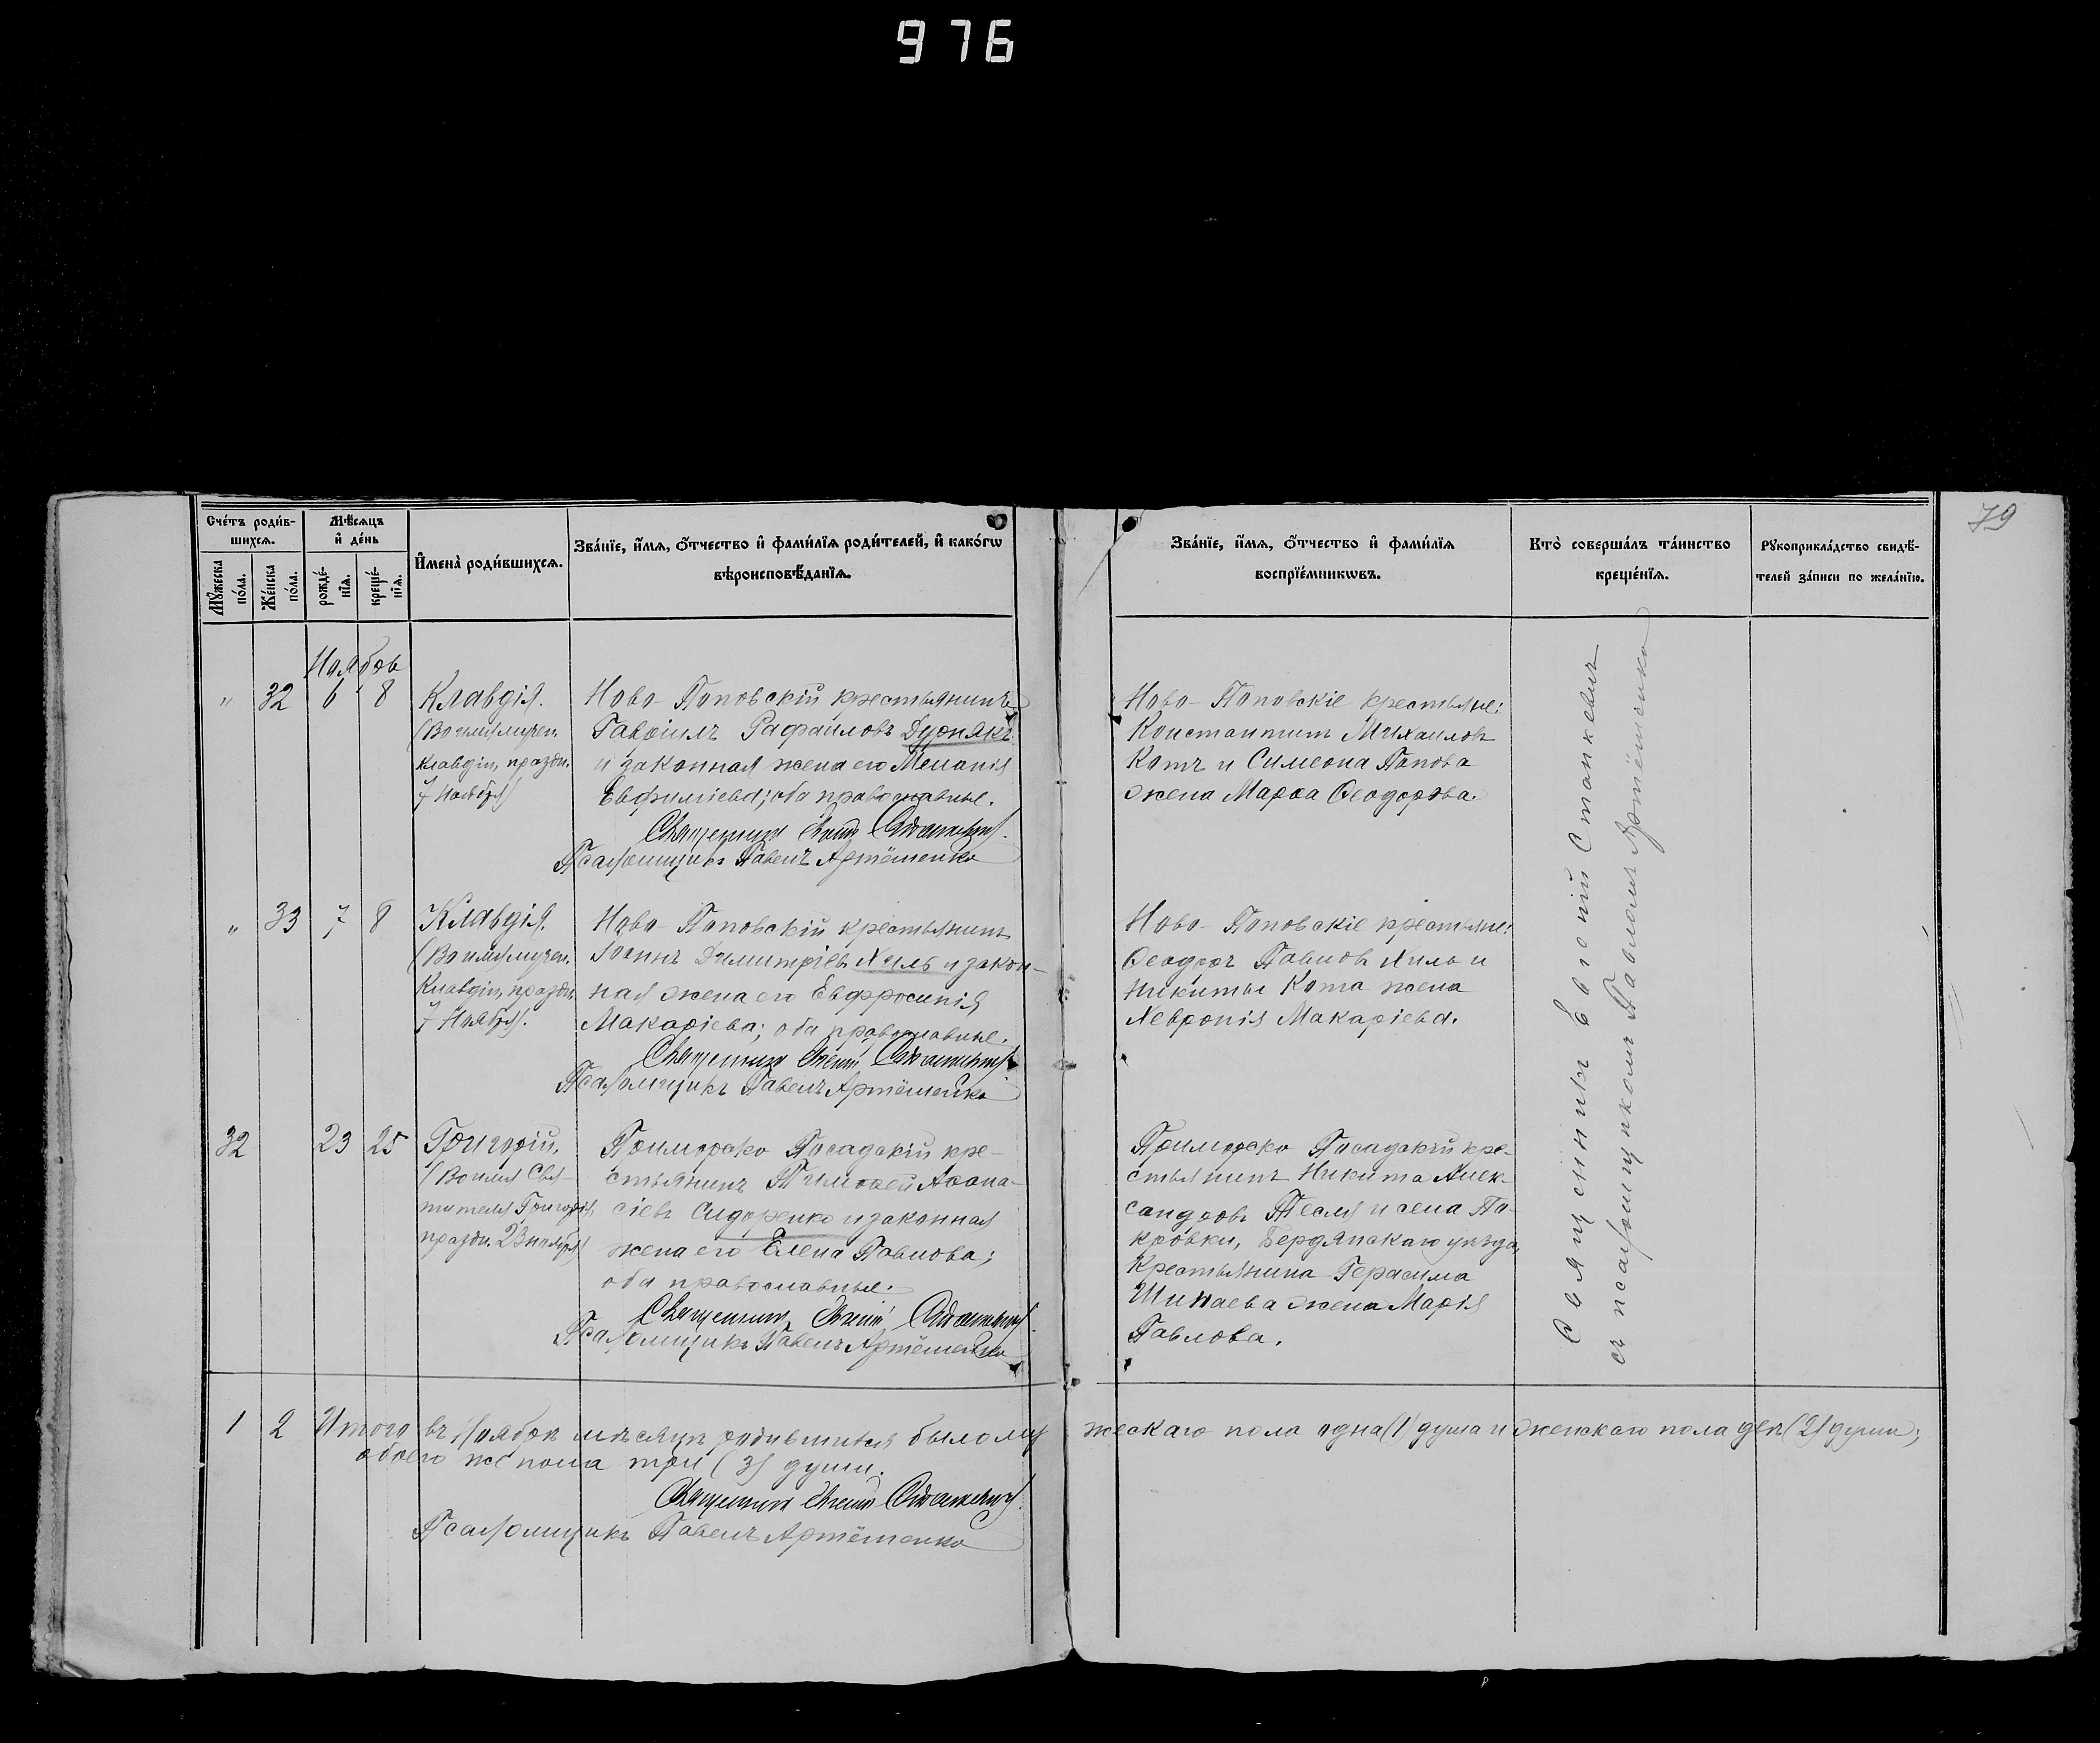 976
79
Счетъ родив-
шихся.
Мѣсяцъ
и день
Мужеска
пола.
Женска
пола.
рожде-
нія.
креще-
нія.
Имена родившихся.
Званіе, имя, отчество и фамилія родителей, и какогѡ
вѣроисповѣданія.
Званіе, имя, отчество и фамилія
воспріемникѡвъ.
Кто совершалъ таинство
крещенія.
Рукоприкладство свидѣ-
телей записи по желанію.
Ноябрь
" 32 6 8
Клавдія.
(Во имя мучен.
Клавдіи, праздн.
7 Ноября)
Ново-Поповскій крестьянинъ
Гавріилъ Рафаиловъ Дурнякъ
и законная жена его Меланія
Евфиміева; оба православные.
Священникъ Евгеній Станкевичъ.
Псаломщикъ Павелъ Артёменко
Ново-Поповскіе крестьяне:
Константинъ Михаиловъ
Котъ и Симеона Попова
жена Марѳа Ѳеодорова.
Священникъ Евгеній Станкевичъ
съ псаломщикомъ Павломъ Артёменко
" 33 7 8
Клавдія.
(Во имя мучен.
Клавдіи, праздн.
7 Ноября).
Ново-Поповскій крестьянинъ
Іоаннъ Димитріевъ Хиль и закон-
ная жена его Евфросинія
Макаріева; оба православные.
Священникъ Евгеній Станкевичъ
Псаломщикъ Павелъ Артёменко
Ново-Поповскіе крестьяне:
Ѳеодоръ Павловъ Хиль и
Никиты Кота жена
Хевронія Макаріева.
32 23 25
Григорій.
(Во имя Свя-
тителя Григорія,
праздн. 23 ноября)
Приморско Посадскій кре-
стьянинъ Тимоѳей Аѳана-
сіевъ Сидоренко и законная
жена его Елена Павлова;
оба православные.
Священникъ Евгеній Станкевичъ
Псаломщикъ Павелъ Артёменко
Приморско Посадскій кре-
стьянинъ Никита Алек-
сандровъ Тесля и села По-
кровки, Бердянскаго уѣзда,
Крестьянина Герасима
жена Марія
Павлова.
1 2 Итого въ Ноябрѣ мѣсяцѣ родившихся было му жескаго пола одна (1) душа и женскаго пола двѣ (2) души;
обоего же пола три (3) души.
Священникъ Евгеній Станкевичъ.
Псаломщикъ Павелъ Артёменко